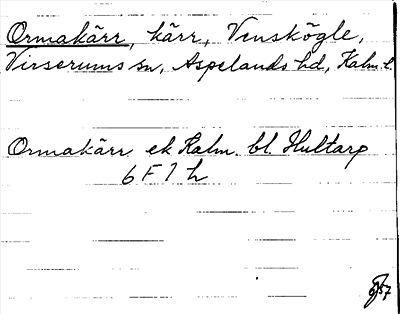 Ormakärr, kärr, Venskögle,
Virserums sn, Aspelands hd, Kalm. l.
Ormakärr ek Kalm. bl. Hultarp
6 F 7 h